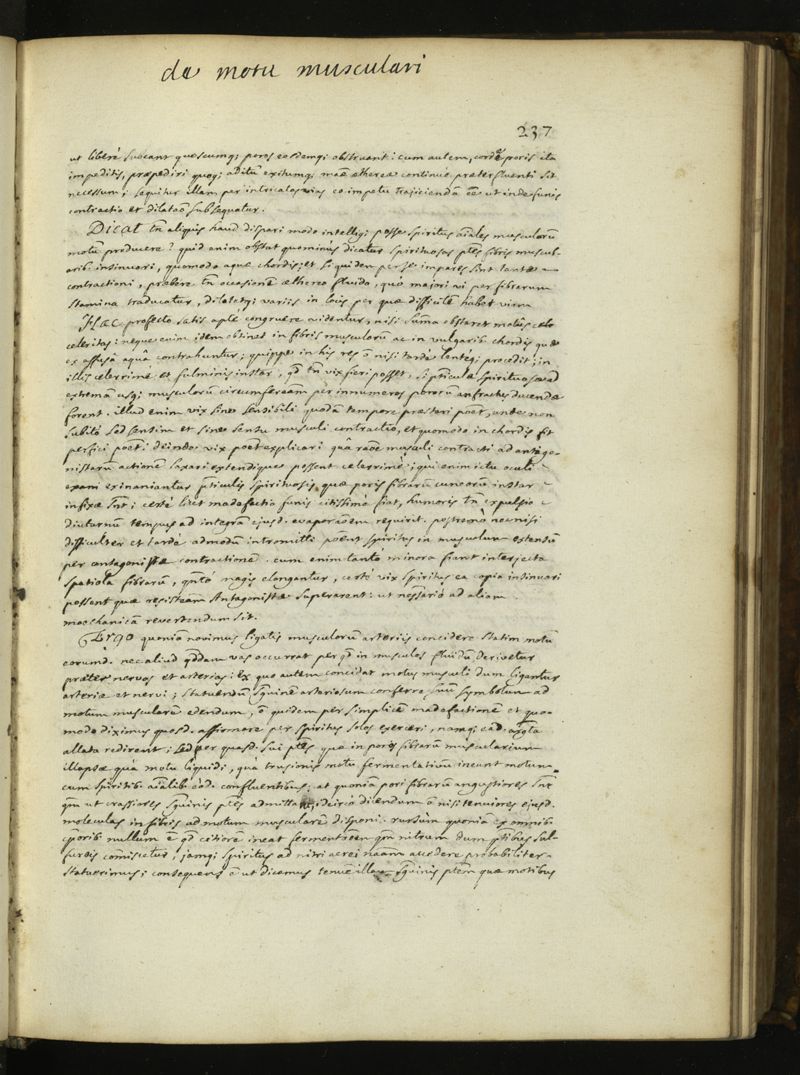 de motu musculari
237
ut liberè subeant quoscumq; poros eosdemq; obstruant: cum autem, cordæ poris ita
impeditis, præpediri quoq; aditũ exitumq; maæ æthereæ continuo præterfluenti sit
necessum; sequitur illam per intricatos vias eo impetu trajiciendã eẽ ut inde funis
contractio et dilataõ subsequatur.
Dicat tñ aliquis haud dispari modo intelligi posse spiritus aĩales musculorũ
motũ producere? quid enim obstat quominus dicatur spirituosas ptes fibris muscul-
arib. insinuari, quomodo aquæ chordis; et si quidem per se impares sint tantæ
contractioni, præbere tñ occasionẽ æthereo fluido, quò majori vi per fibrarum
stamina traducatur, dilatetq; variis in locis per quæ difficilẽ habet viam
Hæc profecto satis aptè congruere videntur, nisi suma obstaret motûs celer
celeritas: neque enim idem obtinet in fibris musculorũ ac in vulgarib. chordis quæ
ex affusâ aquâ contrahuntur; quippe in his res õ nisi tardè lentèq; procedit; in
illis celerrimè et fulminis instar, qd tñ vix fieri posset, si pticulæ spirituosæ ad
extremã usq; musculorũ circumfereãm per innumeros pororũ anfractus ducendæ
forent. illud enim vix sine sensibili quodã tempore præstari põet, unde non
subitò sed sensim et sine sensu musculi contractio, et quomodo in chordis fit
perfici põet: deinde vix põet explicari quâ raõe musculi contracti ad antago-
nistarũ actionẽ laxari extendique possent celerrimè; qui enim ictu oculi
exani exinaniantur pticulis spirituosis, quæ poris fibrarũ cuneorũ instar
infixæ snt; certè licet madefactio funis citissimè fiat, humoris tñ expulsio
diuturnũ tempus ad integrã ejusd. evaporaõem requirit. postremò nonnisi
difficulter et tardè admodũ intromitti põent spiritus in musculum extensũ
per antagonistæ contractionẽ. cum enim tantò minora fiant interjecta
spatiola fibrarũ, qntò magis elongantur, certè vix spiritus ea copia insinuari
possent quæ resistẽam Antagonistæ superarent: ut nessariò ad aliam
mæchanicã revertendum sit.
quonia novimus ligatis musculorũ arteriis concidere statim motũ
eorumd. nec aliud qddam vas occurrat per qd in musculos fluidũ derivetur
præter nervos et arterias: Ex quo autem concidat motus musculi dum ligantur
arteriæ et nervi; statuendũ sguinẽ arteriosum conferre suũ symbolum ad
motum muscularẽ edendum, õ quidem per simplicẽ madefactionẽ et quo-
modo diximus quosd. affirmare per spiritus solos exerceri, namq; ead. argta
allata redirent; sed per quasd. sui ptes quæ in poris fibrarũ muscularium
illapsæ quâ motu liquidi, quâ trusionis motũ fermentativũ ineunt
cum spiritib. aĩalib. eòd. confluentibus; at quoniã pori fibrarũ angustiores snt
qm ut crassiores sguinis ptes admittant, ideircò dicendum õ nisi tenuiores ejusd.
moleculas in fibris ad motum muscularẽ disponi. rursum quonia ex omnib.
cporib. nullum ẽ qd citiorẽ ineat fermentaõem qm nitrum dum ptibus sul-
fureis comiscetur, jamq; spiritus ad nitri aerei naãm accedere probabiliter
statuerimus; consequens ẽ ut dicamus tenuẽ illam sguinis ptem quæ motibus